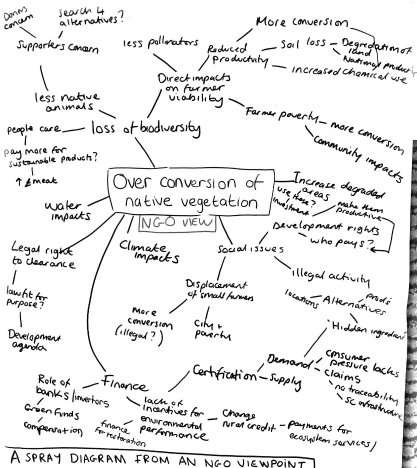 Donors
concern
search 4
alternatives?
Supporters concern
less native
animals
people care
loss of biodiversity
pay more for
sustainable products?
↑ £ meat
less pollinators
Direct impacts
on farmer
viability
Reduced
productivity
More conversion
Soil loss
Degradation of
land
National product
increased chemical use
Farmer poverty
more conversion
community impacts
Over conversion of
native vegetation
NGO VIEW
Increase degraded
areas
use these?
investment
make them
productive
Development rights
who pays?
Water
impacts
Legal right
to clearance
law fit for
purpose?
Development
agenda
Climate
impacts
Social issues
Displacement
of small farmers
More
conversion
(illegal?)
City +
poverty
Illegal activity
locations
Alternatives
Hidden ingredient
Certification
Demand
Supply
consumer
pressure lacks
claims
no traceability
SC infrastructure
Finance
Role of
banks/investors
Green funds
compensation
finance
for restoration
lack of
incentives for
environmental
performance
Change
rural credit
payments for
ecosystem services/
A SPRAY DIAGRAM FROM AN NGO VIEWPOINT